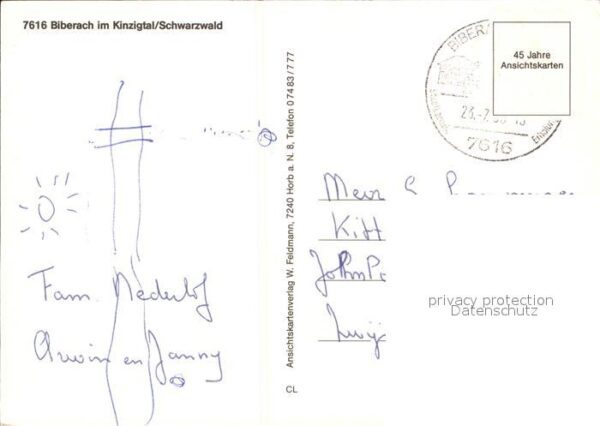 7616 Biberach im Kinzigtal/Schwarzwald
Fam. Nederlof
Arwin en Janny
Ansichtskartenverlag W. Feldmann, 7240 Horb a. N. 8, Telefon 0 74 83 / 7 77
CL
45 Jahre
Ansichtskarten
BIBERA
23.-7.
7616
Kitt
JohmP
privacy protection
Datenschutz